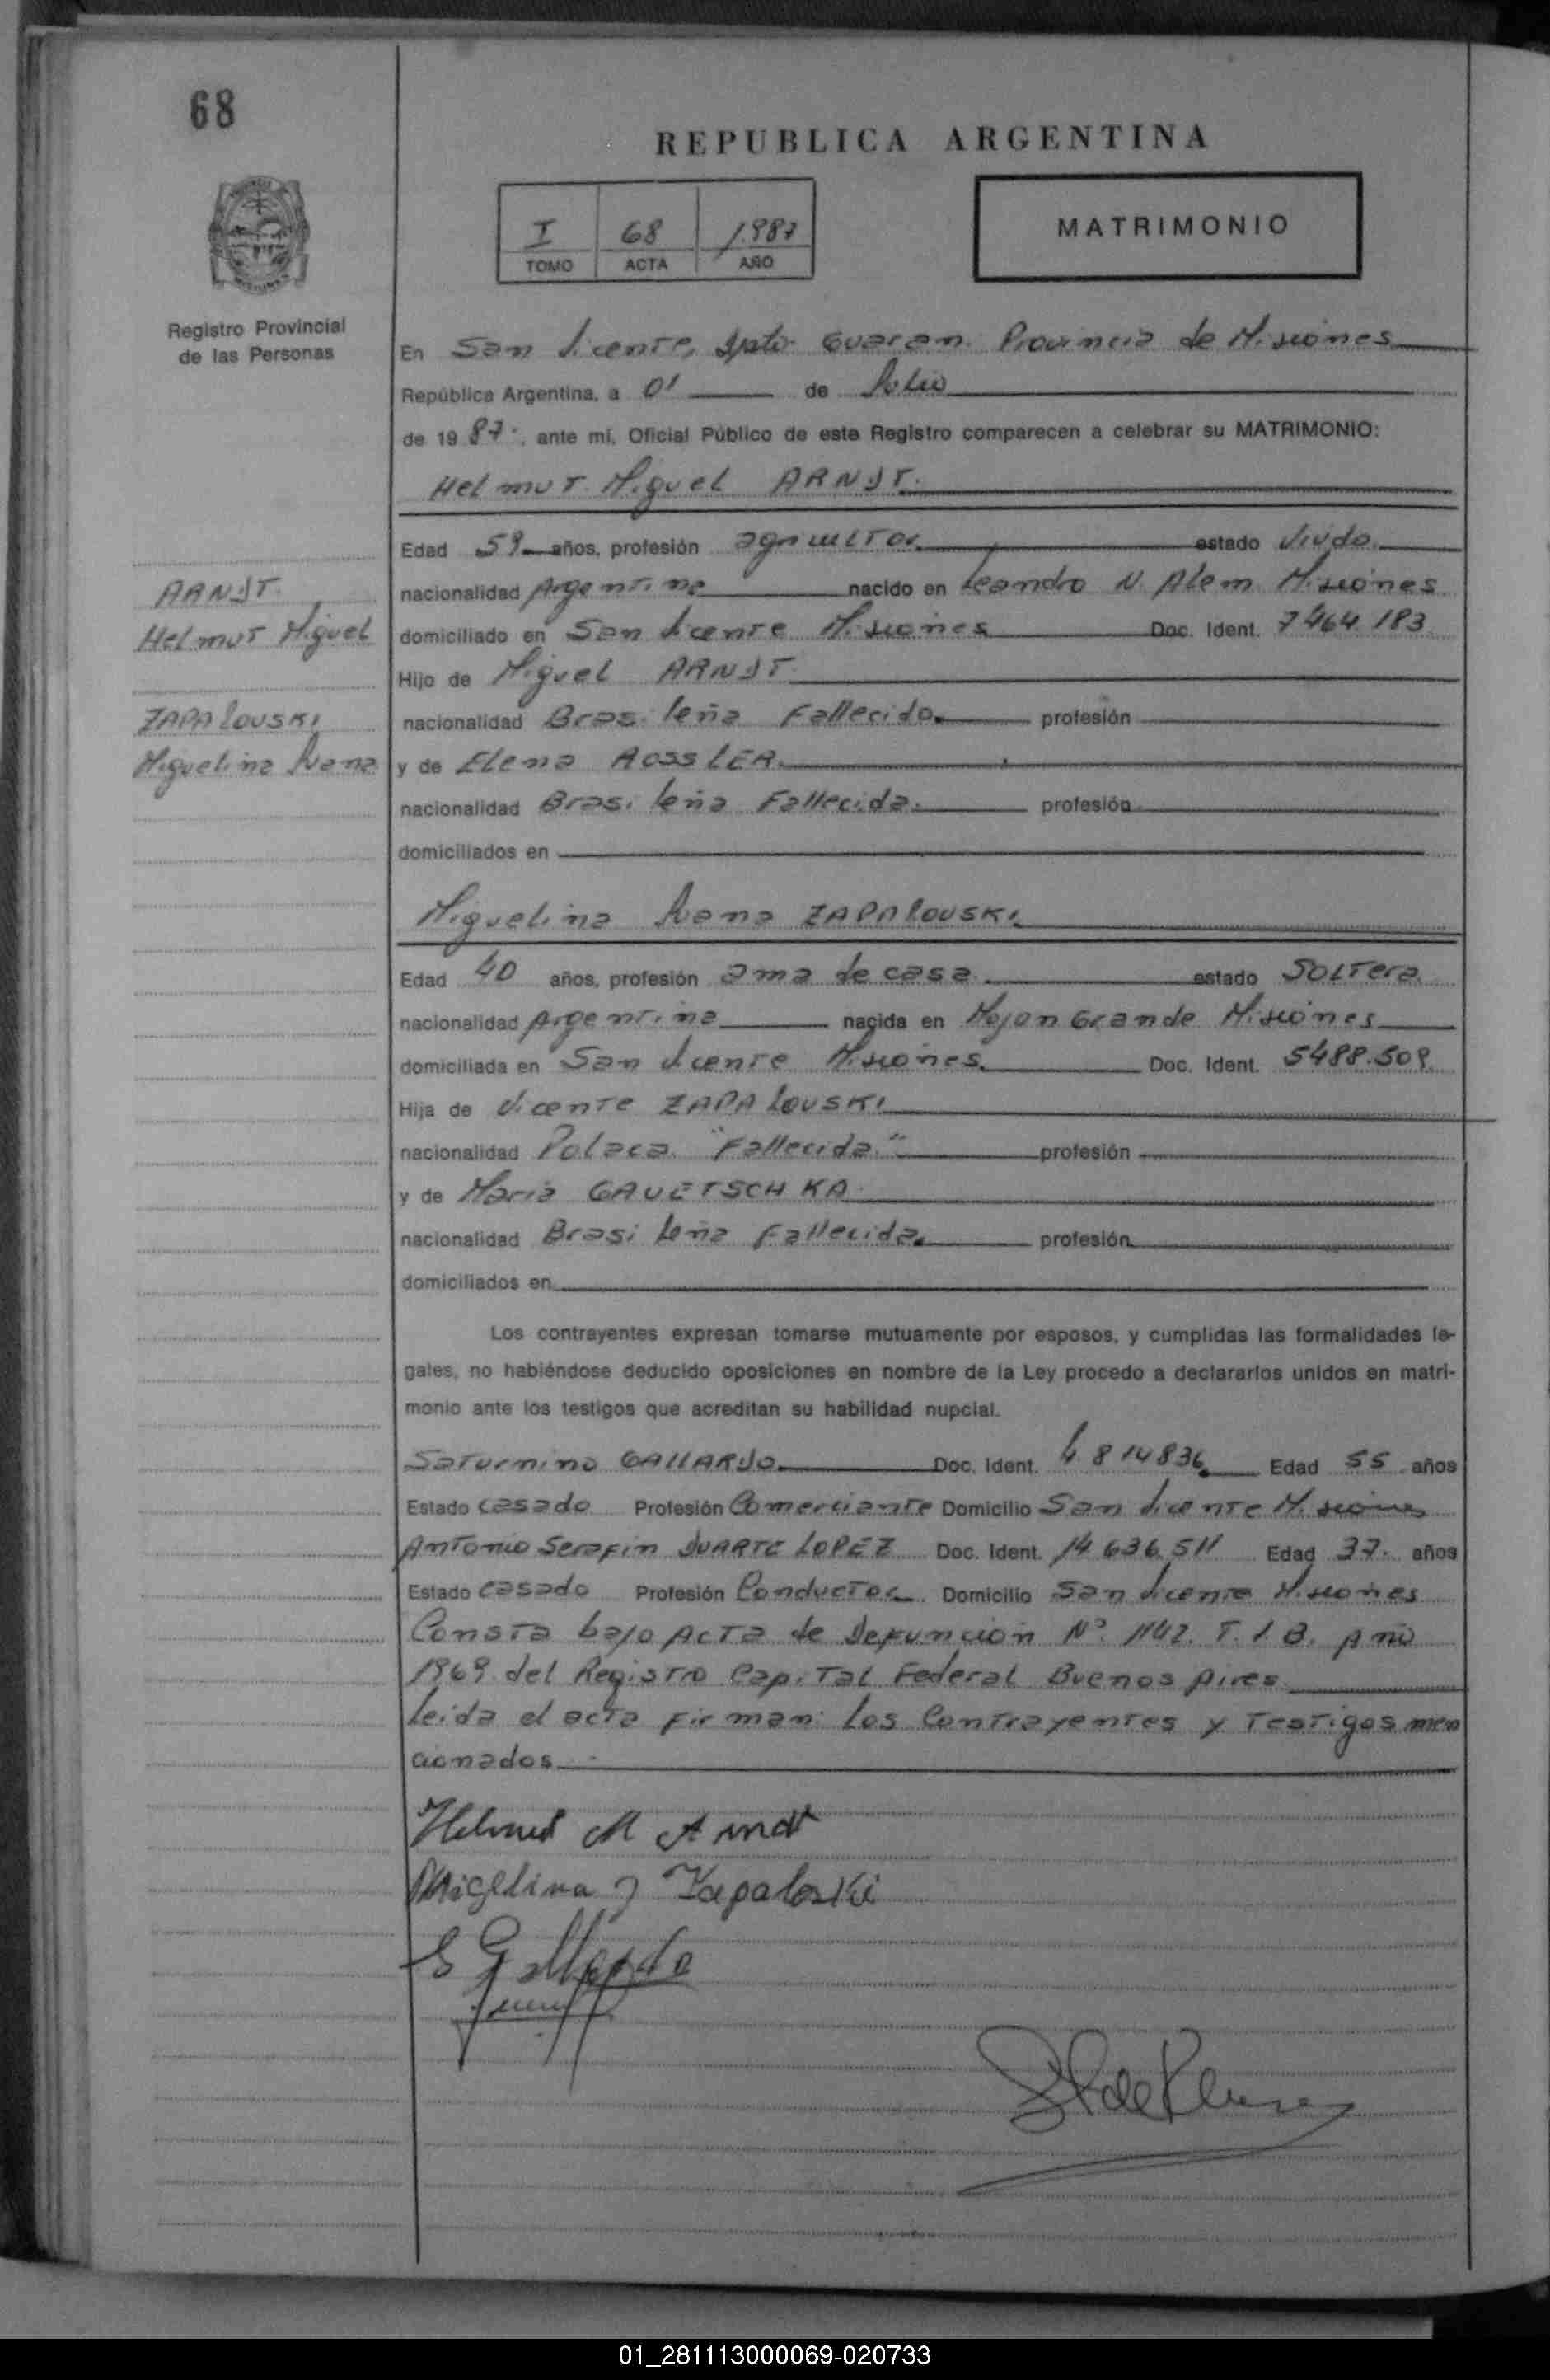 68
REPUBLICA ARGENTINA
I 68 1987
TOMO ACTA AÑO
MATRIMONIO
Registro Provincial
de las Personas
En San Vicente, Dpto. Guarani Provincia de Misiones
República Argentina, a 01 de Julio
de 19 87. ante mí, Oficial Público de este Registro comparecen a celebrar su MATRIMONIO:
Helmut Miguel ARNDT.
Edad 59 años, profesión agricultor estado Viudo
ARNDT.
Helmut Miguel
ZAPALOUSKI
Miguelina Juana
nacionalidad Argentina nacido en Leandro N. Alem Misiones
domiciliado en San Vicente Misiones Doc. Ident. 7464183
Hijo de Miguel ARNDT
nacionalidad Brasileña Fallecido. profesión
y de Elena ROSSLER
nacionalidad Brasileña Fallecida. profesión
domiciliados en
Miguelina Juana ZAPALOUSKI
Edad 40 años, profesión ama de casa estado Soltera
nacionalidad Argentina nacida en Mojon Grande Misiones
domiciliada en San Vicente Misiones Doc. Ident. 5488.509
Hija de Vicente ZAPALOUSKI
nacionalidad Polaca "Fallecida" profesión
y de Maria GAUETSCHKA
nacionalidad Brasileña Fallecida. profesión
domiciliados en
Los contrayentes expresan tomarse mutuamente por esposos, y cumplidas las formalidades le-
gales, no habiéndose deducido oposiciones en nombre de la Ley procedo a declararlos unidos en matri-
monio ante los testigos que acreditan su habilidad nupcial.
Saturnino GALLARDO Doc. Ident. 4.814836 Edad 55 años
Estado casado Profesión Comerciante Domicilio San Vicente Misiones
Antonio Serafin DUARTE LOPEZ Doc. Ident. 14636511 Edad 37. años
Estado casado Profesión Conductor Domicilio San Vicente Misiones
Consta bajo Acta de Defuncion Nº 1142. T. 1 B. Año
1969 del Registro Capital Federal Buenos Aires
Leida el acta firman: los Contrayentes y Testigos men
cionados
Helmut M Arndt
Migelina J Zapaloski
S Gallardo
01_281113000069-020733